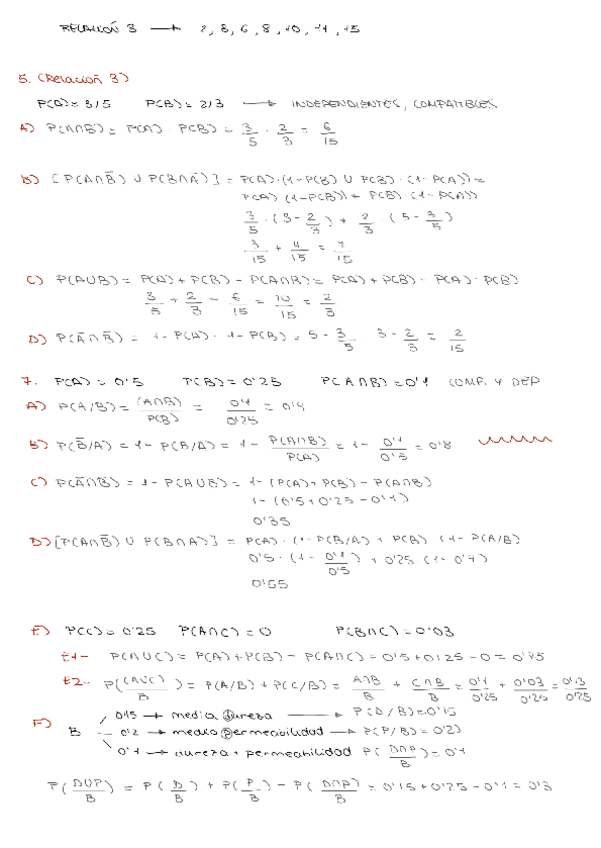 RELACIÓN 3 → 2, 3, 6, 8, 10, 11, 15
5. (Relación 3)
P(A) = 3/5 P(B) = 2/3 → INDEPENDIENTES, COMPATIBLES
A) P(A∩B) = P(A) · P(B) = 3/5 · 2/3 = 6/15
B) [P(A∩B̄) ∪ P(B∩Ā)] = P(A)·(1-P(B) ∪ P(B)·(1-P(A)) =
P(A)·(1-P(B)) + P(B)·(1-P(A))
3/5 · (3 - 2/3) + 2/3 · (5 - 3/5)
3/15 + 4/15 = 7/15
C) P(A∪B) = P(A) + P(B) - P(A∩B) = P(A) + P(B) - P(A)·P(B)
3/5 + 2/3 - 6/15 = 10/15 = 2/3
D) P(Ā∩B̄) = 1-P(A) · 1-P(B) = 5 - 3/5 3 - 2/3 = 2/15
7. P(A) = 0'5 P(B) = 0'25 P(A∩B) = 0'1 COMP. Y DEP
A) P(A/B) = (A∩B)/P(B) = 0'1/0'25 = 0'4
B) P(B̄/A) = 1 - P(B/A) = 1 - P(A∩B)/P(A) = 1 - 0'1/0'5 = 0'8
C) P(Ā∩B̄) = 1 - P(A∪B) = 1 - (P(A) + P(B) - P(A∩B)
1 - (0'5 + 0'25 - 0'1)
0'35
D) [P(A∩B̄) ∪ P(B∩Ā)] = P(A)·(1-P(B/A) + P(B)·(1-P(A/B)
0'5 · (1 - 0'1/0'5) + 0'25 · (1-0'4)
0'55
E) P(C) = 0'25 P(A∩C) = 0 P(B∩C) = 0'03
E1- P(A∪C) = P(A) + P(B) - P(A∩C) = 0'5 + 0'25 - 0 = 0'75
E2- P((A∪C)/B) = P(A/B) + P(C/B) = A∩B/B + C∩B/B = 0'1/0'25 + 0'03/0'25 = 0'13/0'25
F) B
0'15 → media dureza → P(D/B) = 0'15
0'2 → media permeabilidad → P(P/B) = 0'2
0'1 → dureza + permeabilidad P(D∩P/B) = 0'1
P(D∪P/B) = P(D/B) + P(P/B) - P(D∩P/B) = 0'15 + 0'25 - 0'1 = 0'3